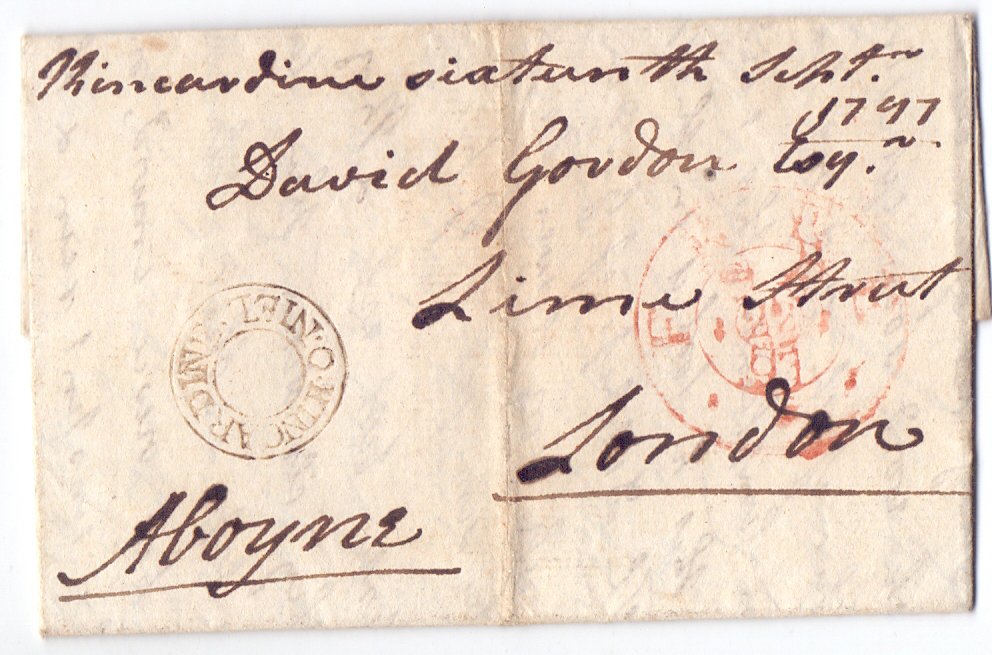 Kincardine sixteenth Sept.r
1797
David Gordon Esq.r
Lime Street
London
KINCARDINE O NIEL
Aboyne